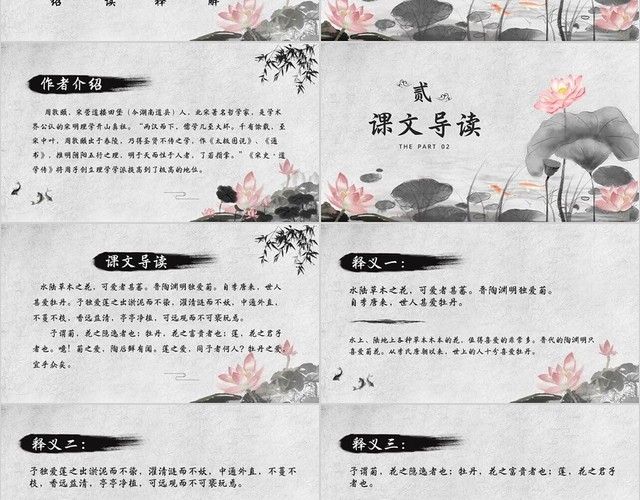 绍 读 释 解
作者介绍
周敦颐，宋营道楼田堡（今湖南道县）人，北宋著名哲学家，是学术
界公认的宋明理学开山鼻祖。“两汉而下，儒学几至大坏。千有余载，至
宋中叶，周敦颐出于舂陵，乃得圣贤不传之学，作《太极图说》、《通
书》，推明阴阳五行之理，明于天而性于人者，了若指掌。”《宋史·道
学传》将周子创立理学学派提高到了极高的地位。
贰
课文导读
THE PART 02
课文导读
水陆草木之花，可爱者甚蕃。晋陶渊明独爱菊。自李唐来，世人
甚爱牡丹。予独爱莲之出淤泥而不染，濯清涟而不妖，中通外直，
不蔓不枝，香远益清，亭亭净植，可远观而不可亵玩焉。
予谓菊，花之隐逸者也；牡丹，花之富贵者也；莲，花之君子
者也。噫！菊之爱，陶后鲜有闻。莲之爱，同予者何人？牡丹之爱，
宜乎众矣。
释义一：
水陆草木之花，可爱者甚蕃。晋陶渊明独爱菊。
自李唐来，世人甚爱牡丹。
水上、陆地上各种草本木本的花，值得喜爱的非常多。晋代的陶渊明只
喜爱菊花。从李氏唐朝以来，世上的人十分喜爱牡丹。
释义二：
予独爱莲之出淤泥而不染，濯清涟而不妖，中通外直，不蔓不
枝，香远益清，亭亭净植，可远观而不可亵玩焉。
释义三：
予谓菊，花之隐逸者也；牡丹，花之富贵者也；莲，花之君子
者也。